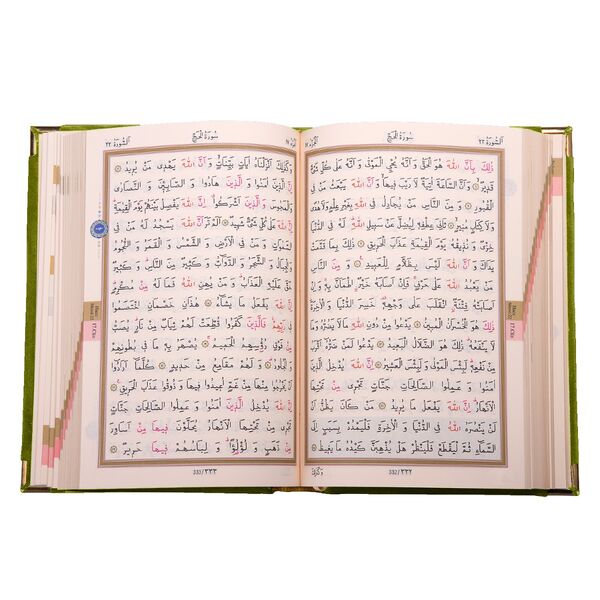 اَلسُّورَةُ ٢٢
سُورَةُ الْحَجِّ
ذٰلِكَ بِاَنَّ اللّٰهَ هُوَ الْحَقُّ وَاَنَّهُ يُحْيِ الْمَوْتٰى وَاَنَّهُ عَلٰى كُلِّ شَيْءٍ
قَدِيرٌ ۝ وَاَنَّ السَّاعَةَ اٰتِيَةٌ لَا رَيْبَ فِيهَا وَاَنَّ اللّٰهَ يَبْعَثُ مَنْ فِي
الْقُبُورِ ۝ وَمِنَ النَّاسِ مَنْ يُجَادِلُ فِي اللّٰهِ بِغَيْرِ عِلْمٍ وَلَا هُدًى
وَلَا كِتَابٍ مُنِيرٍ ۝ ثَانِيَ عِطْفِهِ لِيُضِلَّ عَنْ سَبِيلِ اللّٰهِ لَهُ فِي الدُّنْيَا
خِزْيٌ وَنُذِيقُهُ يَوْمَ الْقِيٰمَةِ عَذَابَ الْحَرِيقِ ۝ ذٰلِكَ بِمَا قَدَّمَتْ
يَدَاكَ وَاَنَّ اللّٰهَ لَيْسَ بِظَلَّامٍ لِلْعَبِيدِ ۝ وَمِنَ النَّاسِ مَنْ يَعْبُدُ
اللّٰهَ عَلٰى حَرْفٍ فَاِنْ اَصَابَهُ خَيْرٌ اطْمَاَنَّ بِهِ وَاِنْ
اَصَابَتْهُ فِتْنَةٌ انْقَلَبَ عَلٰى وَجْهِهِ خَسِرَ الدُّنْيَا وَالْاٰخِرَةَ
ذٰلِكَ هُوَ الْخُسْرَانُ الْمُبِينُ ۝ يَدْعُوا مِنْ دُونِ اللّٰهِ مَا لَا يَضُرُّهُ وَمَا
لَا يَنْفَعُهُ ذٰلِكَ هُوَ الضَّلَالُ الْبَعِيدُ ۝ يَدْعُوا لَمَنْ ضَرُّهُ اَقْرَبُ
مِنْ نَفْعِهِ لَبِئْسَ الْمَوْلٰى وَلَبِئْسَ الْعَشِيرُ ۝ اِنَّ اللّٰهَ يُدْخِلُ
الَّذِينَ اٰمَنُوا وَعَمِلُوا الصَّالِحَاتِ جَنَّاتٍ تَجْرِي مِنْ تَحْتِهَا
الْاَنْهَارُ اِنَّ اللّٰهَ يَفْعَلُ مَا يُرِيدُ ۝ مَنْ كَانَ يَظُنُّ اَنْ لَنْ
يَنْصُرَهُ اللّٰهُ فِي الدُّنْيَا وَالْاٰخِرَةِ فَلْيَمْدُدْ بِسَبَبٍ اِلَى
السَّمَاءِ ثُمَّ لْيَقْطَعْ فَلْيَنْظُرْ هَلْ يُذْهِبَنَّ كَيْدُهُ مَا يَغِيظُ ۝
332/٣٣٢
وَكَذٰلِكَ
اَلسُّورَةُ ٢٢
سُورَةُ الْحَجِّ
وَكَذٰلِكَ اَنْزَلْنَاهُ اٰيَاتٍ بَيِّنَاتٍ وَاَنَّ اللّٰهَ يَهْدِي مَنْ يُرِيدُ ۝
اِنَّ الَّذِينَ اٰمَنُوا وَالَّذِينَ هَادُوا وَالصَّابِئِينَ وَالنَّصَارٰى
وَالْمَجُوسَ وَالَّذِينَ اَشْرَكُوا اِنَّ اللّٰهَ يَفْصِلُ بَيْنَهُمْ يَوْمَ الْقِيٰمَةِ
اِنَّ اللّٰهَ عَلٰى كُلِّ شَيْءٍ شَهِيدٌ ۝ اَلَمْ تَرَ اَنَّ اللّٰهَ يَسْجُدُ لَهُ مَنْ فِي
السَّمٰوَاتِ وَمَنْ فِي الْاَرْضِ وَالشَّمْسُ وَالْقَمَرُ وَالنُّجُومُ
وَالْجِبَالُ وَالشَّجَرُ وَالدَّوَابُّ وَكَثِيرٌ مِنَ النَّاسِ وَكَثِيرٌ
حَقَّ عَلَيْهِ الْعَذَابُ وَمَنْ يُهِنِ اللّٰهُ فَمَا لَهُ مِنْ مُكْرِمٍ
اِنَّ اللّٰهَ يَفْعَلُ مَا يَشَاءُ ۝ هٰذَانِ خَصْمَانِ اخْتَصَمُوا
فِي رَبِّهِمْ فَالَّذِينَ كَفَرُوا قُطِّعَتْ لَهُمْ ثِيَابٌ مِنْ نَارٍ يُصَبُّ
مِنْ فَوْقِ رُؤُسِهِمُ الْحَمِيمُ ۝ يُصْهَرُ بِهِ مَا فِي بُطُونِهِمْ
وَالْجُلُودُ ۝ وَلَهُمْ مَقَامِعُ مِنْ حَدِيدٍ ۝ كُلَّمَا اَرَادُوا اَنْ
يَخْرُجُوا مِنْهَا مِنْ غَمٍّ اُعِيدُوا فِيهَا وَذُوقُوا عَذَابَ الْحَرِيقِ ۝
اِنَّ اللّٰهَ يُدْخِلُ الَّذِينَ اٰمَنُوا وَعَمِلُوا الصَّالِحَاتِ جَنَّاتٍ
تَجْرِي مِنْ تَحْتِهَا الْاَنْهَارُ يُحَلَّوْنَ فِيهَا مِنْ اَسَاوِرَ
مِنْ ذَهَبٍ وَلُؤْلُؤًا وَلِبَاسُهُمْ فِيهَا حَرِيرٌ ۝
333/٣٣٣